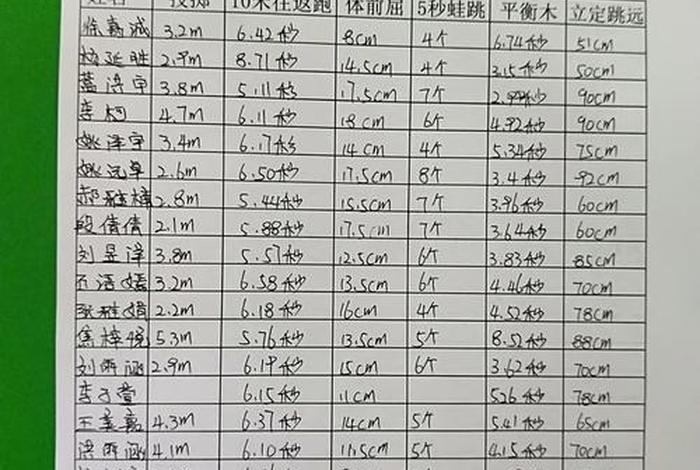 投掷 10米往返跑 体前屈 5秒蛙跳 平衡木 立定跳远
3.2m 6.42秒 8cm 4个 6.74秒 51cm
2.9m 8.71秒 14.5cm 4个 3.15秒 50cm
3.8m 5.11秒 17.5cm 7个 90cm
李柯 4.7m 6.11秒 18cm 6个 4.92秒 90cm
姚泽宇 3.4m 6.17秒 14cm 4个 5.34秒 75cm
2.6m 6.50秒 17.5cm 8个 3.4秒 92cm
2.8m 5.44秒 15.5cm 7个 3.96秒 60cm
段倩倩 2.1m 5.88秒 17.5cm 7个 3.64秒 60cm
刘昱泽 3.8m 5.57秒 12.5cm 6个 3.83秒 85cm
3.2m 6.58秒 13.5cm 6个 4.46秒 70cm
2.2m 6.18秒 16cm 4个 4.52秒 78cm
焦梓悦 5.3m 5.76秒 13.5cm 5个 8.52秒 88cm
刘雨涵 2.9m 6.19秒 15cm 6个 3.62秒 70cm
李子萱 6.15秒 11cm 5.26秒 78cm
4.3m 6.37秒 14cm 5个 5.41秒 65cm
4.1m 6.10秒 11.5cm 5个 4.15秒 70cm